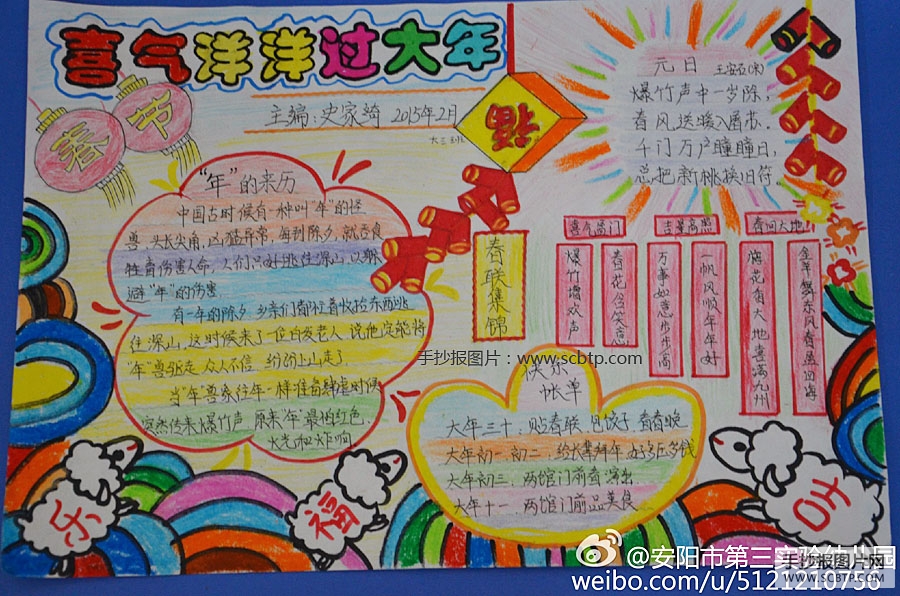 喜气洋洋过大年
主编:史家绮 2015年2月
大三班
春节
"年"的来历
中国古时候有一种叫"年"的怪
兽,头长尖角,凶猛异常,每到除夕,就吞食
牲畜伤害人命,人们只好逃往深山,以躲
避"年"的伤害.
有一年的除夕,乡亲们都忙着收拾东西逃
往深山,这时候来了一位白发老人,说他定能将
"年"兽驱走,众人不信,纷纷上山走了
当"年"兽象往年一样准备肆虐时候
突然传来爆竹声,原来"年"最怕红色,
火光和炸响
元日 王安石(宋)
爆竹声中一岁除,
春风送暖入屠苏.
千门万户曈曈日,
总把新桃换旧符.
春联集锦
喜气盈门
爆竹谱欢声
春花含笑意
吉星高照
万事如意步步高
一帆风顺年年好
春回大地
梅花香大地喜满九州
快乐
帐单
大年三十,贴春联 包饺子 看春晚
大年初一 初二,给长辈拜年
大年初三,两馆门前看演出
大年十一,两馆门前品美食
乐
福
吉
手抄报图片:www.scbtp.com
@安阳市第三实验幼儿园
weibo.com/u/5121210756
手抄报图片网
WWW.SCBTP.COM